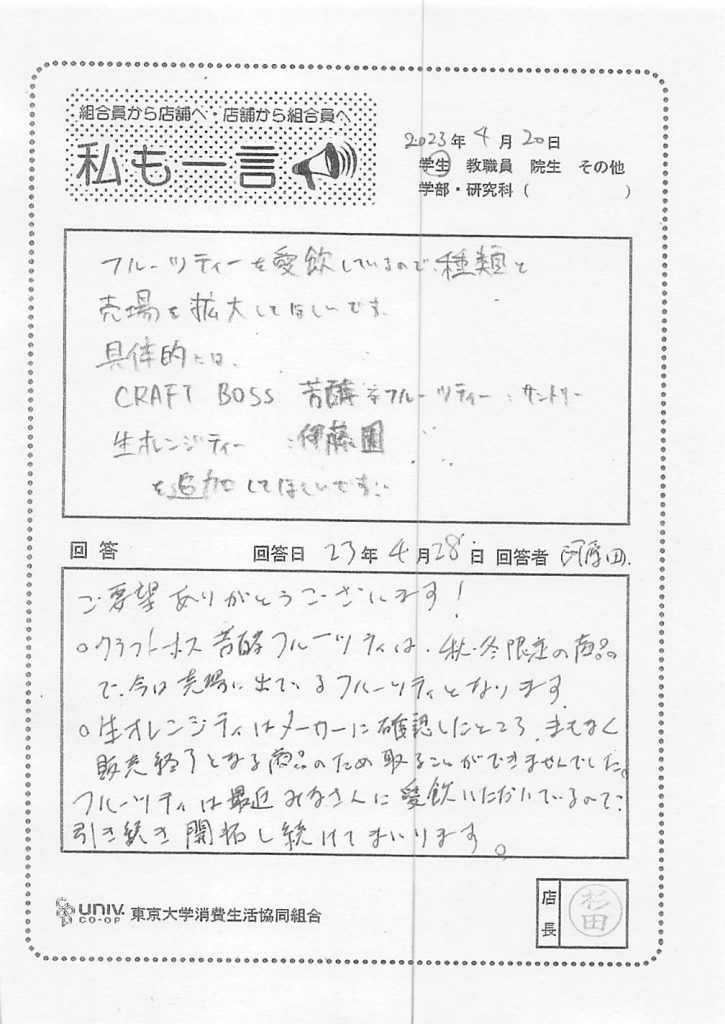 組合員から店舗へ・店舗から組合員へ
私も一言
2023年 4月 20日
学生 教職員 院生 その他
学部・研究科（ ）
フルーツティーを愛飲しているので、種類と
売場を拡大してほしいです。
具体的には、
CRAFT BOSS 芳醇 フルーツティー：サントリー
生オレンジティー ：伊藤園
を追加してほしいです。
回答 回答日 23年 4月28日 回答者
ご要望ありがとうございます！
○クラフトボス 芳醇フルーツティは、秋・冬限定の商品
で、今は売場に出ているフルーツティとなります。
○生オレンジティはメーカーに確認したところ、まもなく
販売終了となる商品のため取ることができませんでした。
フルーツティは最近みなさんに愛飲いただいているので、
引き続き開拓し続けてまいります。
UNIV. CO-OP 東京大学消費生活協同組合
店長 杉田